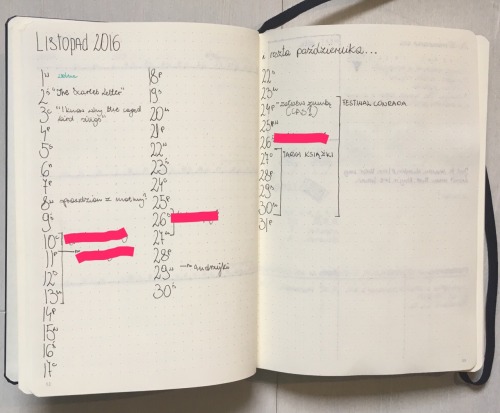 LISTOPAD 2016
1w
2ś "The Scarlet Letter"
3c "I know why the caged
bird sings"
4p
5s
6n
7p
8w sprawdzian z matmy?
9ś
10c
11p
12s
13n
14p
15w
16ś
17c
18p
19s
20n
21p
22w
23ś
24c
25p
26s
27n
28p
29w → andrzejki
30ś
reszta października...
22s
23n
24p
FESTIWAL CONRADA
25w
26ś
27c TARGI KSIĄŻKI
28p
29s
30n
31p